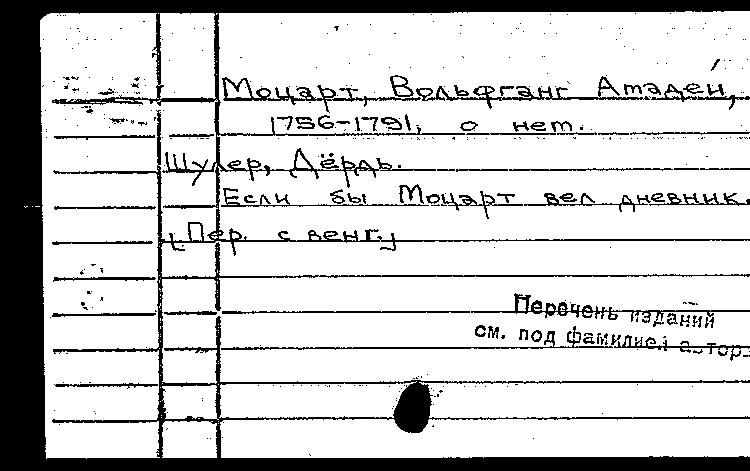 Моцарт, Вольфганг Амадей,
1756-1791, о нем.
Шулер, Дёрдь.
Если бы Моцарт вел дневник.
[Пер. с венг.]
Перечень изданий
см. под фамилией автор